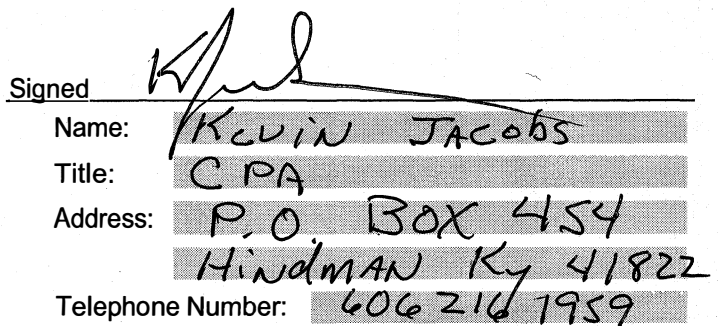 Signed
Name: Kevin Jacobs
Title: CPA
Address: P.O. Box 454
Hindman Ky 41822
Telephone Number: 606 216 1959